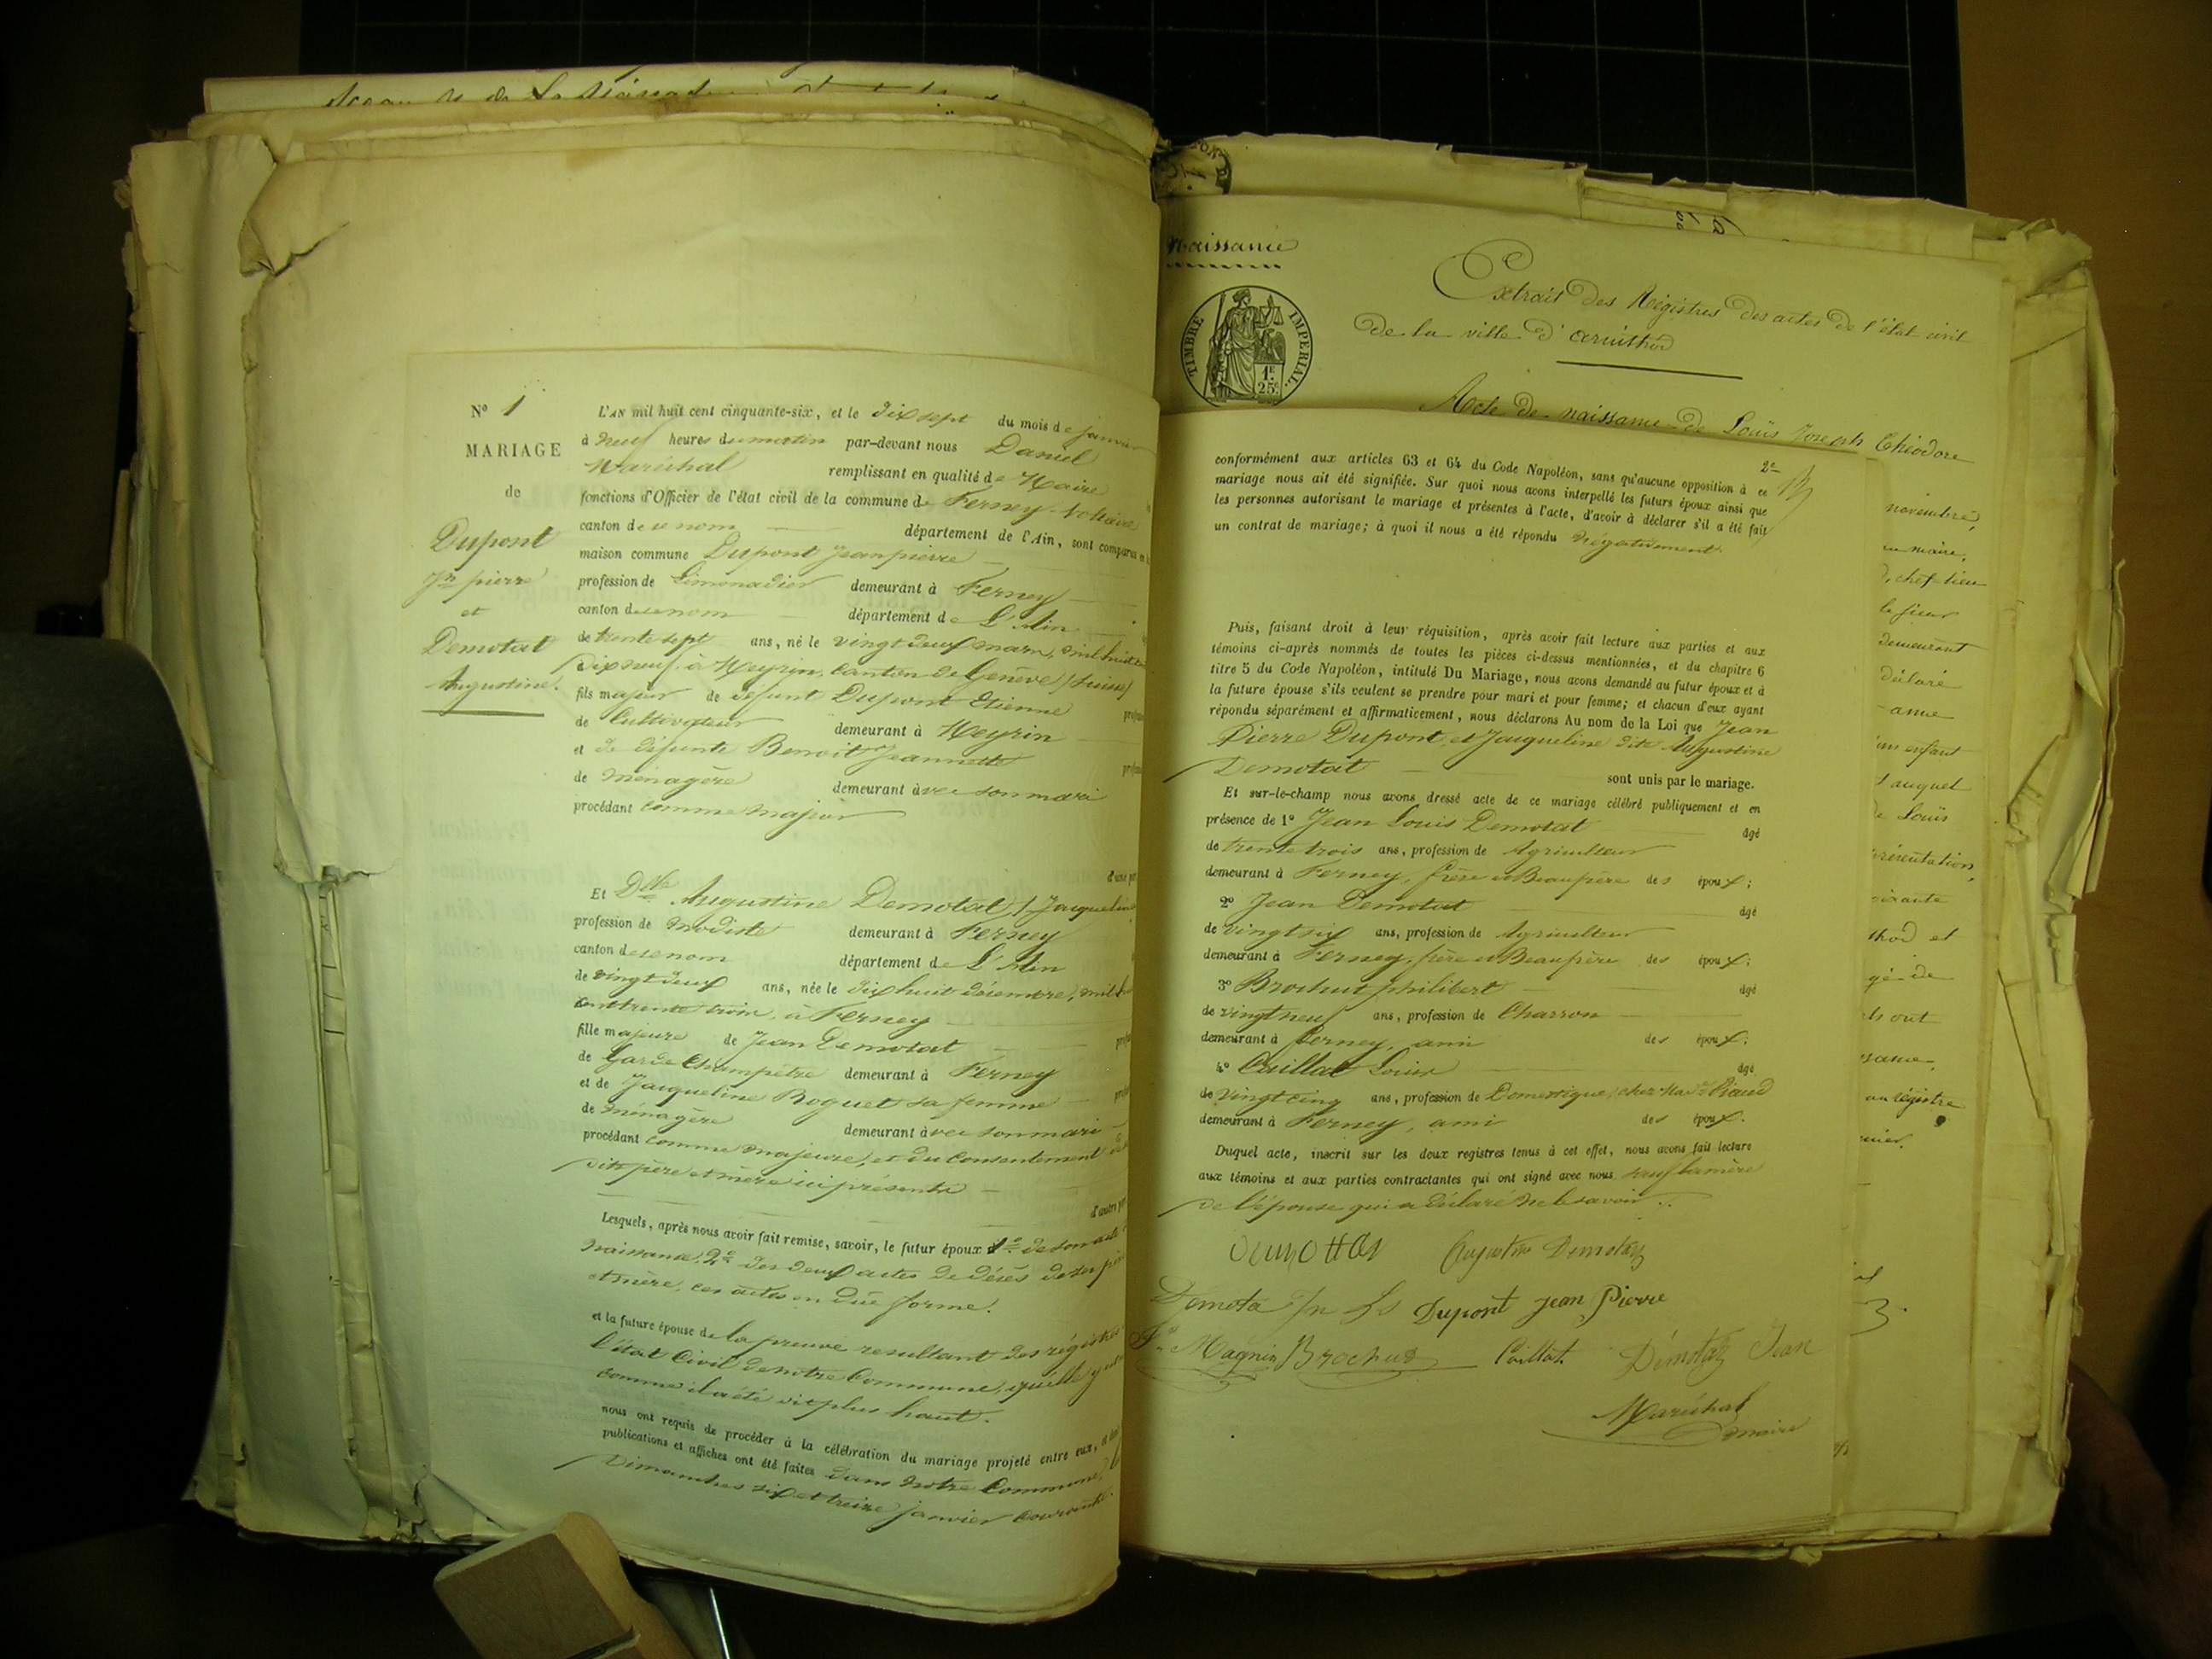 Nº 1
MARIAGE
de
Dupont
Jn pierre
et
Demotat
Augustine.
L'AN mil huit cent cinquante-six, et le dix sept du mois de janvier
à neuf heures du matin par-devant nous Daniel
Maréchal remplissant en qualité de Maire
fonctions d'Officier de l'état civil de la commune de Ferney-Voltaire
canton de ce nom département de l'Ain, sont comparus en la
maison commune Dupont Jean pierre
profession de Limonadier demeurant à Ferney
canton de ce nom département de L'Ain
de trente sept ans, né le vingt deux mars, mil huit cent
dix neuf, à Meyrin, Canton de Genève (Suisse)
fils majeur de défunt Dupont Etienne
de Cultivateur demeurant à Meyrin
et de défunte Benoit Jeannette
de ménagère demeurant avec son mari
procédant comme majeur
d'une part
Et Dlle Augustine Demotat (Jacqueline
profession de modiste demeurant à Ferney
canton de ce nom département de L'Ain
de vingt deux ans, née le dix huit décembre, mil huit
cent trente trois, à Ferney
fille majeure de Jean Demotat
de Garde Champêtre demeurant à Ferney
et de Jacqueline Roguet sa femme
de ménagère demeurant avec son mari
procédant comme majeure, et du consentement de
dits père et mère ici présents
d'autre part
Lesquels, après nous avoir fait remise, savoir, le futur époux 1º de son acte de
naissance, 2º des deux actes de décès de ses père
et mère, ces actes en due forme.
et la future épouse de la preuve resultant des régistres
l'état Civil de notre Commune, qu'elle y est
comme il a été dit plus haut.
nous ont requis de procéder à la célébration du mariage projeté entre eux,
publications et affiches ont été faites dans notre Commune, les
Dimanches six et treize janvier courant.
Naissance
TIMBRE IMPERIAL.
1F.
25c.
Extrait des Régistres des actes de l'état civil
de la ville d'arinthod
Acte de naissance de Louis Joseph Théodore
2e
conformément aux articles 63 et 64 du Code Napoléon, sans qu'aucune opposition à ce
mariage nous ait été signifiée. Sur quoi nous avons interpellé les futurs époux ainsi que
les personnes autorisant le mariage et présentes à l'acte, d'avoir à déclarer s'il a été fait
un contrat de mariage; à quoi il nous a été répondu négativement.
Puis, faisant droit à leur réquisition, après avoir fait lecture aux parties et aux
témoins ci-après nommés de toutes les pièces ci-dessus mentionnées, et du chapitre 6
titre 5 du Code Napoléon, intitulé Du Mariage, nous avons demandé au futur époux et à
la future épouse s'ils veulent se prendre pour mari et pour femme; et chacun d'eux ayant
répondu séparément et affirmativement, nous déclarons Au nom de la Loi que Jean
Pierre Dupont et Jacqueline dite Augustine
Demotat sont unis par le mariage.
Et sur-le-champ nous avons dressé acte de ce mariage célébré publiquement et en
présence de 1º Jean Louis Demotat âgé
de trente trois ans, profession de Agriculteur
demeurant à Ferney, frère et Beaufrère des époux;
2º Jean Demotat âgé
de vingt six ans, profession de Agriculteur
demeurant à Ferney, frère et Beaufrère des époux;
3º Brochut philibert âgé
de vingt neuf ans, profession de Charron
demeurant à Ferney, ami des époux;
4º Caillat Louis âgé
de vingt cinq ans, profession de Domestique, chez Made Riaud
demeurant à Ferney, ami des époux.
Duquel acte, inscrit sur les deux registres tenus à cet effet, nous avons fait lecture
aux témoins et aux parties contractantes qui ont signé avec nous sauf la mère
de l'épouse qui a déclaré ne le savoir.
Augustine Demotaz
Demota Jn Ls Dupont Jean Pierre
Magnin Brochut Caillat. Démotaz Jean
Maréchal
maire
novembre,
maire,
chef-lieu
le sieur
demeurant
déclaré
un enfant
auquel
de Louis
présentation,
thod et
gé de
ils ont
au régistre
3.